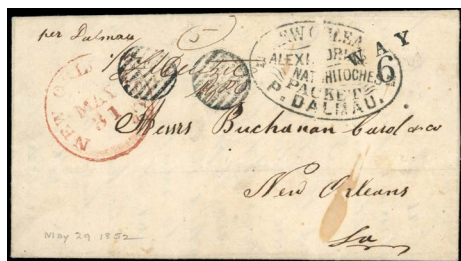 per Dalmau
5
NEW ORLEANS
ALEXANDRIA
NATCHITOCHES
PACKET
P. DALMAU.
WAY
6
NEW ORL
MAY
31
Messrs Buchanan Carol & co
New Orleans
La
May 29 1852